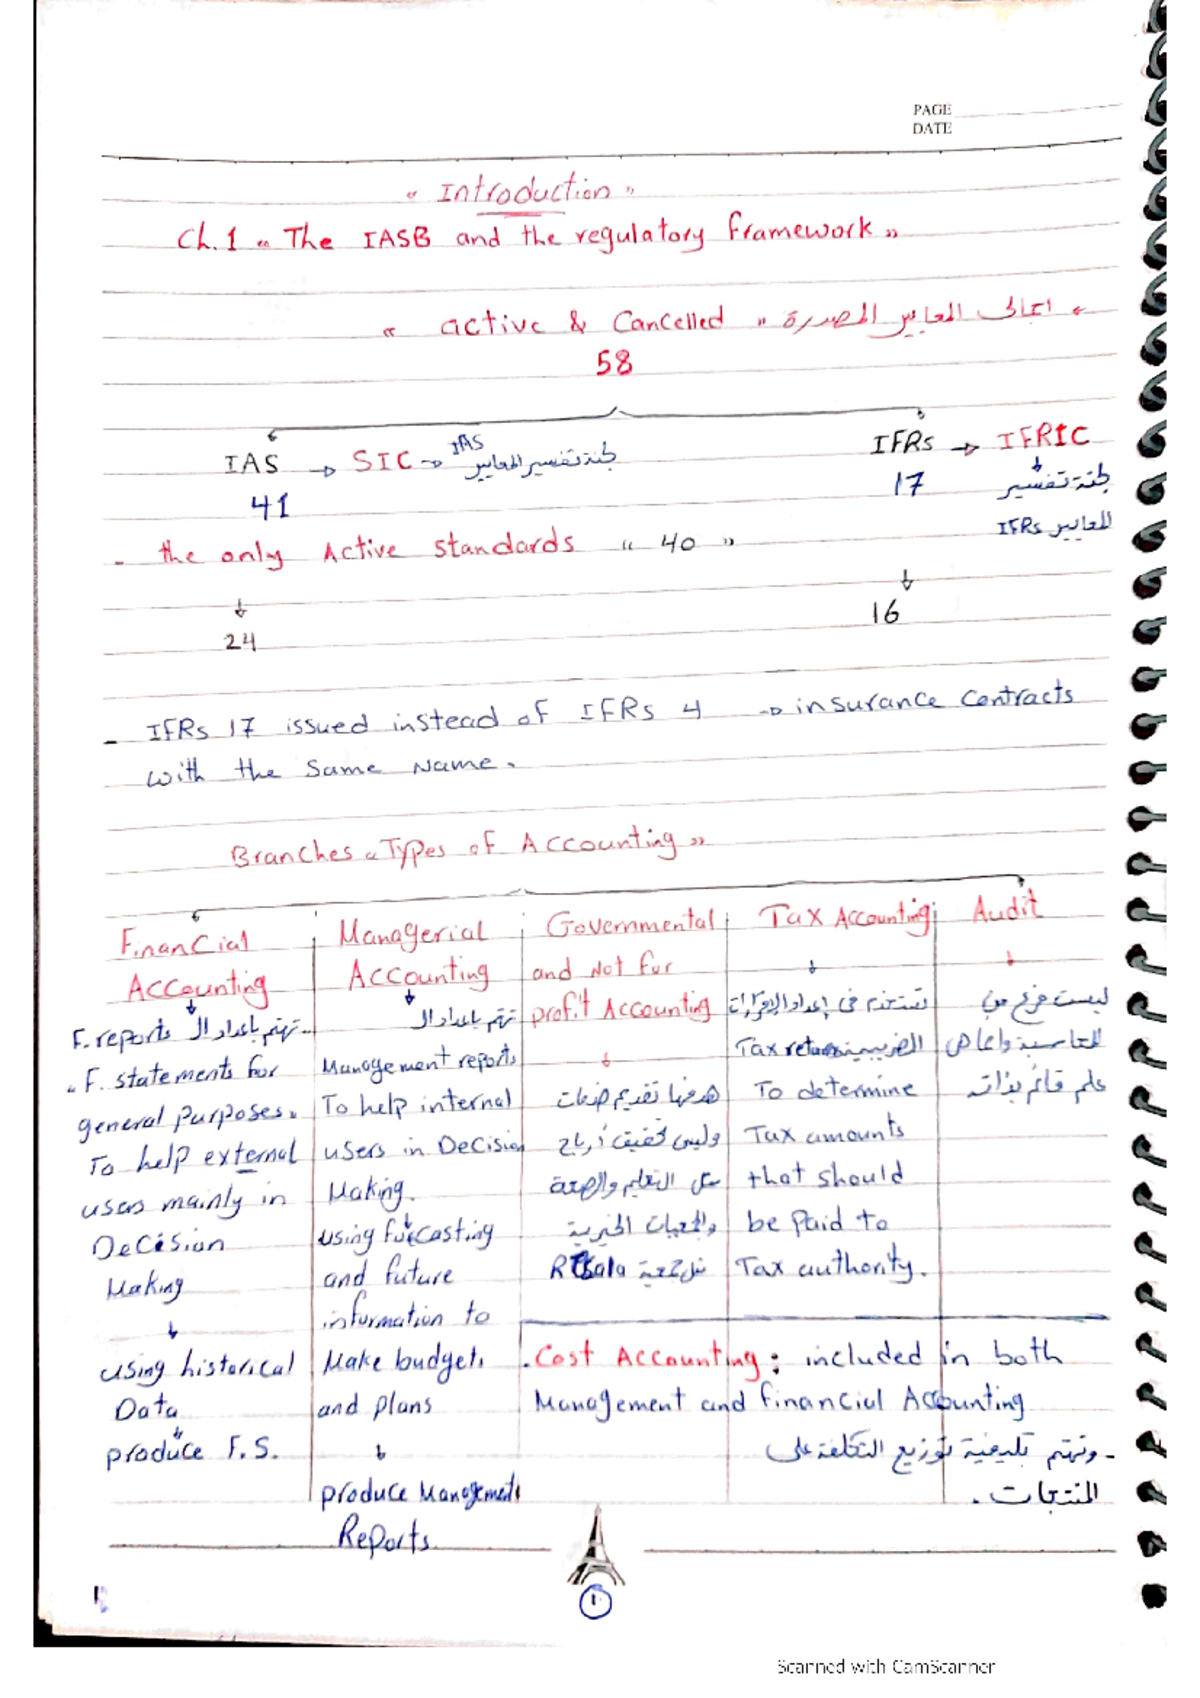 PAGE
DATE
« Introduction »
Ch.1 « The IASB and the regulatory framework »
« active & Cancelled » اجمالى المعايير المصدرة
58
IAS → SIC → لجنة تفسير المعايير IAS
IFRs → IFRIC
41
17
لجنة تفسير
المعايير IFRs
- the only Active standards " 40 "
24
16
- IFRs 17 issued instead of IFRs 4 → insurance Contracts
with the Same Name.
Branches « Types of Accounting »
Financial
Accounting
تهتم باعداد ال F. reports
" F. statements for
general purposes"
To help external
users mainly in
Decision
Making
using historical
Data
produce F.S.
Managerial
Accounting
تهتم باعداد ال
Management reports
To help internal
users in Decision
Making.
using forcasting
and future
information to
Make budgets
and plans
produce Management
Reports
Governmental
and Not for
profit Accounting
هدفها تقديم خدمات
وليس تحقيق أرباح
مثل التعليم والصحة
والجمعيات الخيرية
مثل جمعية Resala
Tax Accounting
تستخدم فى إعداد الإقرارات
الضريبية Tax return
To determine
Tax amounts
that should
be paid to
Tax authority.
Audit
ليست فرع من
المحاسبة وانما هى
علم قائم بذاته
. Cost Accounting : included in both
Management and financial Accounting
- وتهتم بكيفية توزيع التكلفة على
المنتجات .
1
Scanned with CamScanner